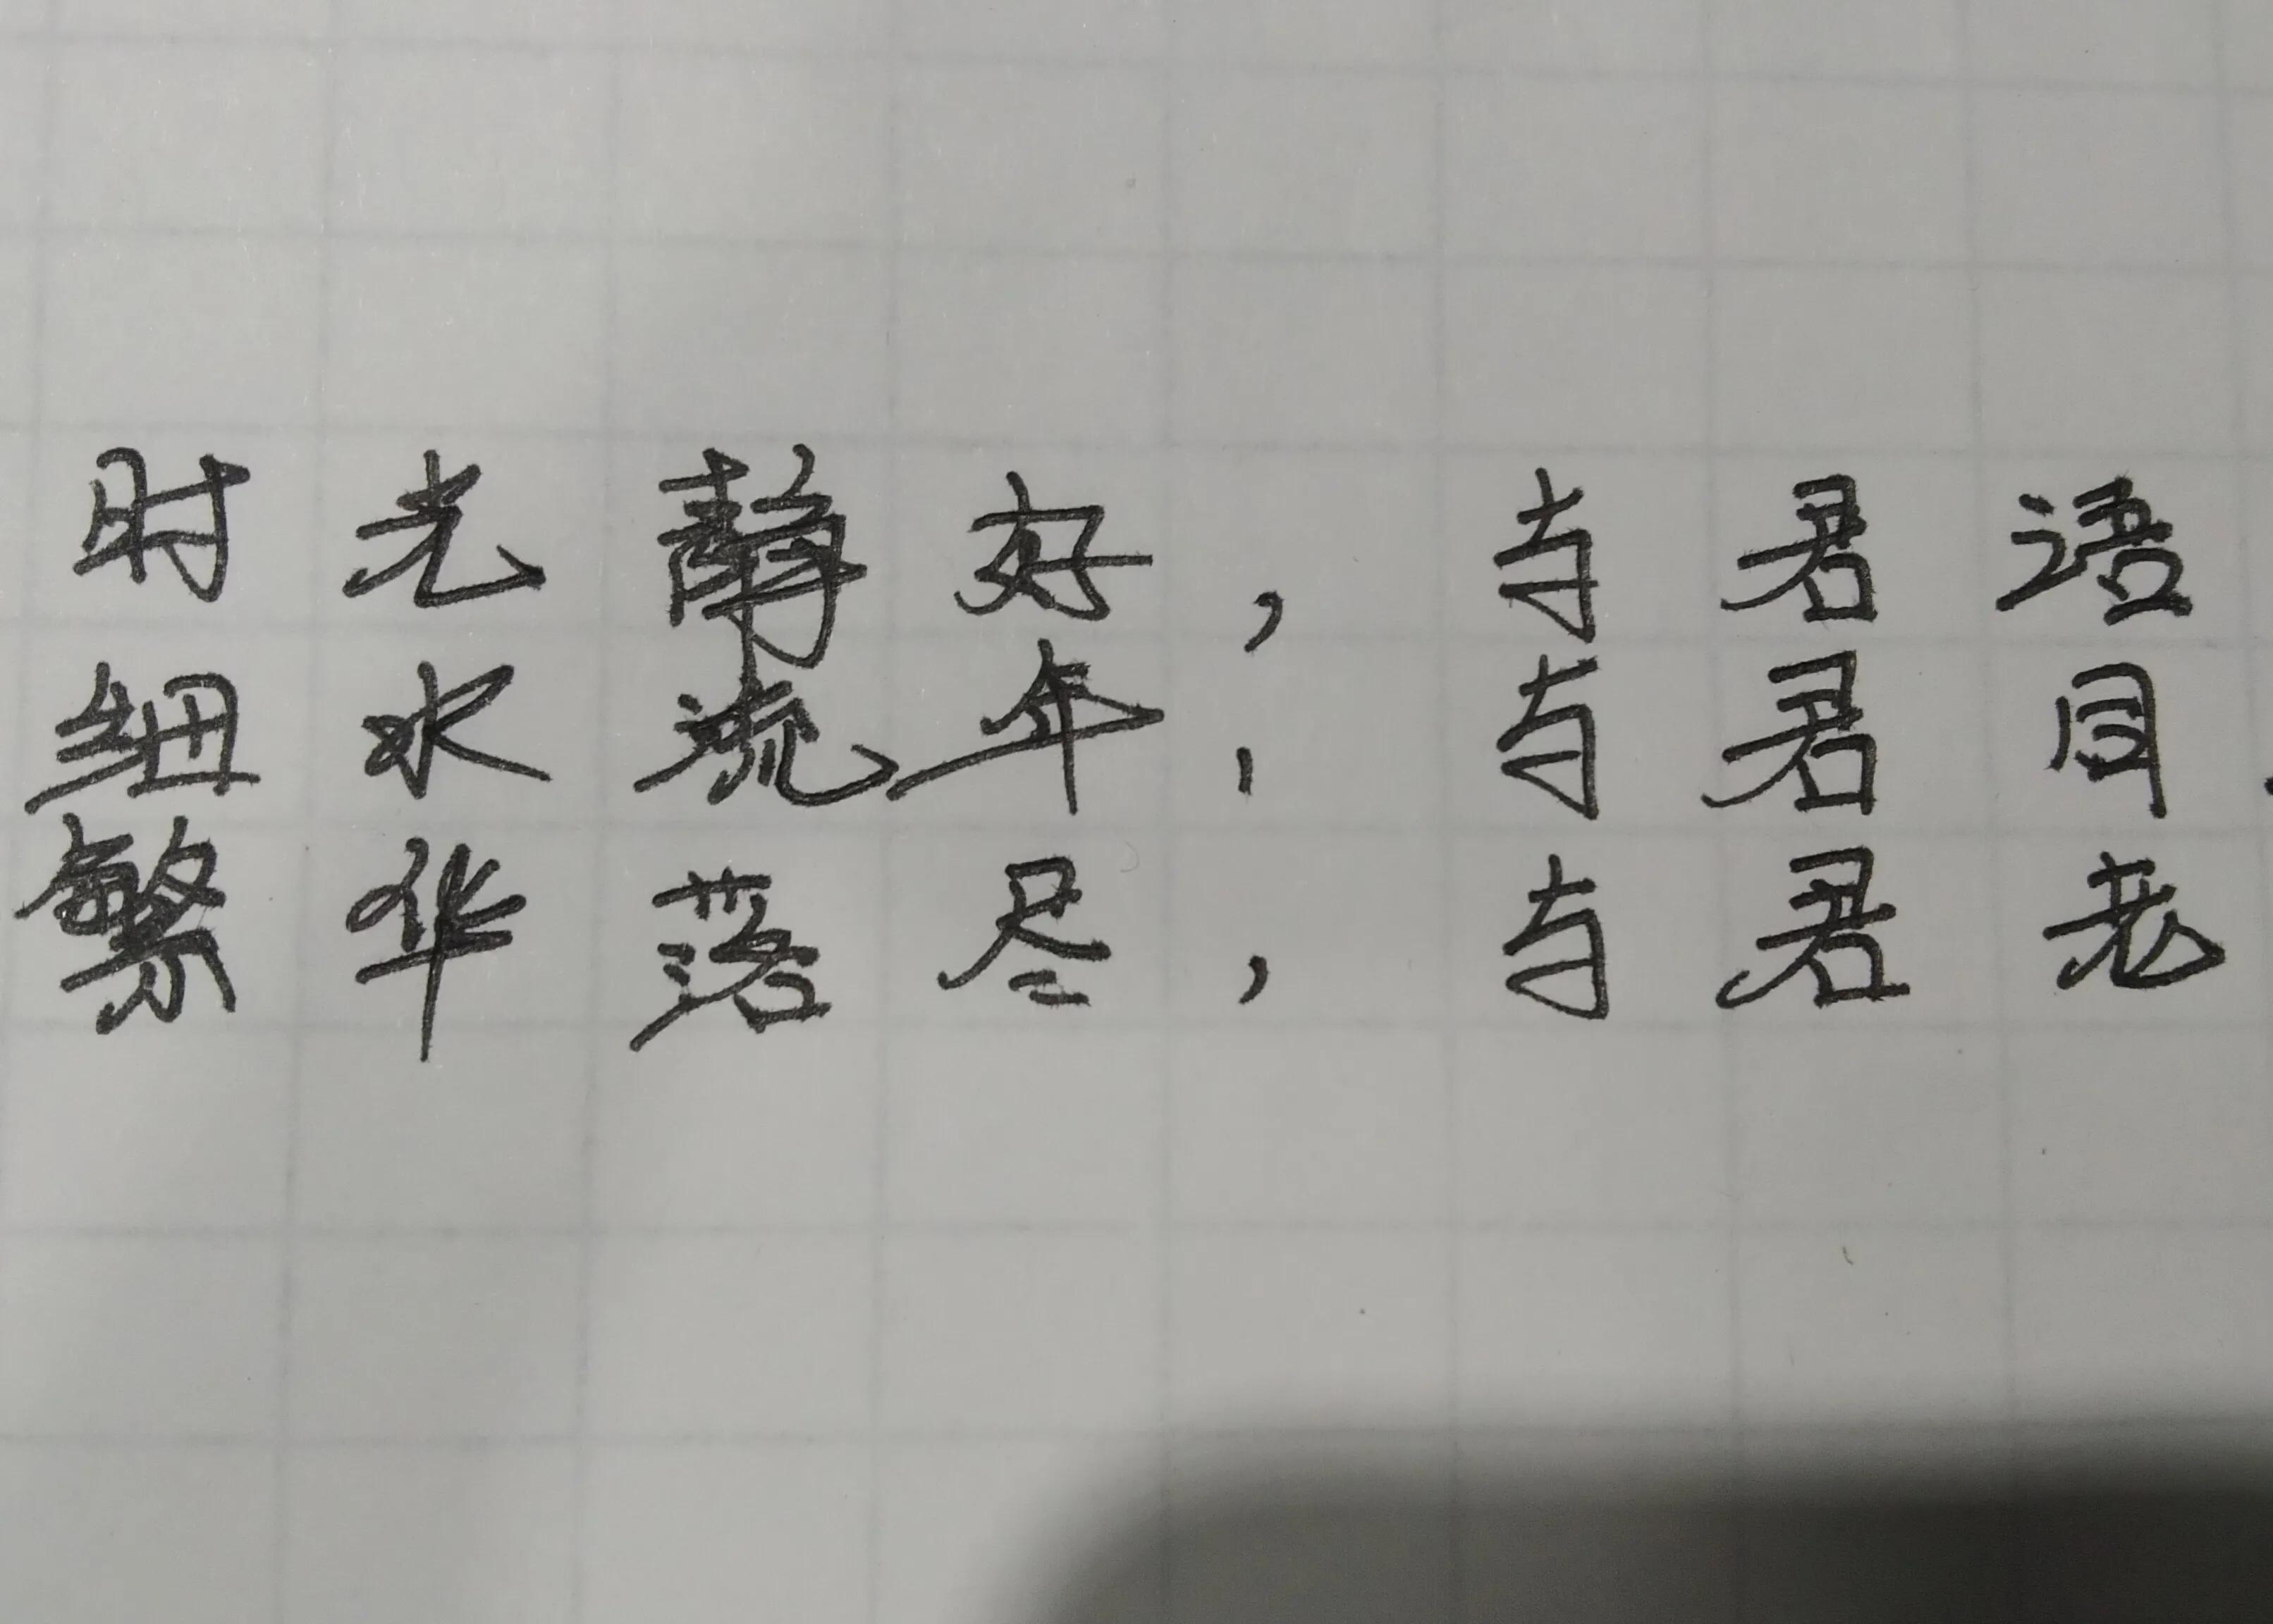 时光静好,与君语
细水流年,与君同.
繁华落尽,与君老